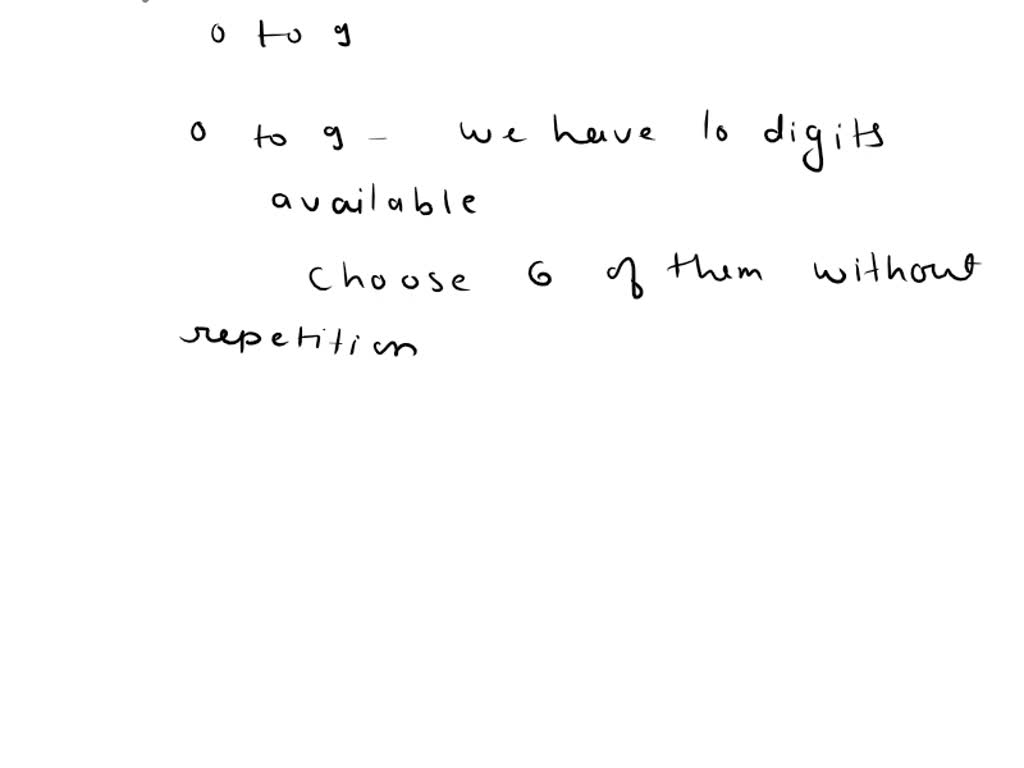 0 to 9
0 to 9 - we have 10 digits
available
choose 6 of them without
repetition